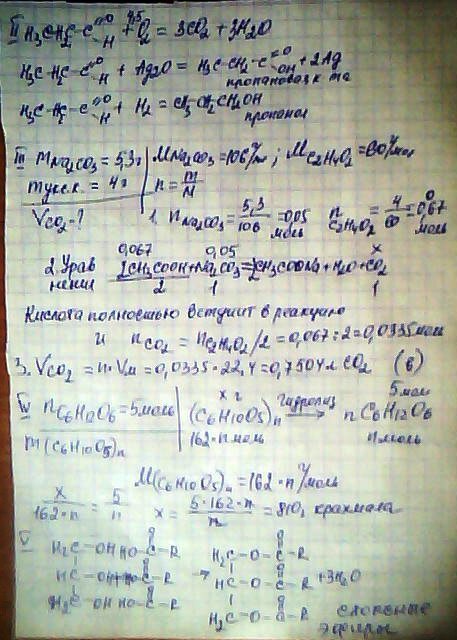 II H₃C-CH₂-C(=O)H + 4,5 O₂ = 3CO₂ + 3H₂O
H₃C-CH₂-C(=O)H + Ag₂O = H₃C-CH₂-C(=O)OH + 2Ag
пропановая к-та
H₃C-CH₂-C(=O)H + H₂ = CH₃CH₂CH₂OH
пропанол
III m Na₂CO₃ = 5,3г M Na₂CO₃ = 106 г/моль ; M C₂H₄O₂ = 60 г/моль
m укс.к. = 4г n = m/M
V CO₂ - ? 1. n Na₂CO₃ = 5,3/106 = 0,05 моль n C₂H₄O₂ = 4/60 = 0,067 моль
0,067 0,05 x
2. Уравнение 2CH₃COOH + Na₂CO₃ = 2CH₃COONa + H₂O + CO₂
2 1 1
Кислота полностью вступит в реакцию
и n CO₂ = n C₂H₄O₂/2 = 0,067 : 2 = 0,0335 моль
3. V CO₂ = n·Vм = 0,0335 · 22,4 = 0,7504 л CO₂ (б)
IV n C₆H₁₂O₆ = 5моль x г (C₆H₁₀O₅)n гидролиз → 5моль n C₆H₁₂O₆
m (C₆H₁₀O₅)n 162·n моль n моль
M(C₆H₁₀O₅)n = 162·n г/моль
x/162·n = 5/n x = 5·162·n/n = 810г крахмала
V H₂C-OH HO-C(=O)-R H₂C-O-C(=O)-R
HC-OH + HO-C(=O)-R → HC-O-C(=O)-R + 3H₂O
H₂C-OH HO-C(=O)-R H₂C-O-C(=O)-R сложные
эфиры